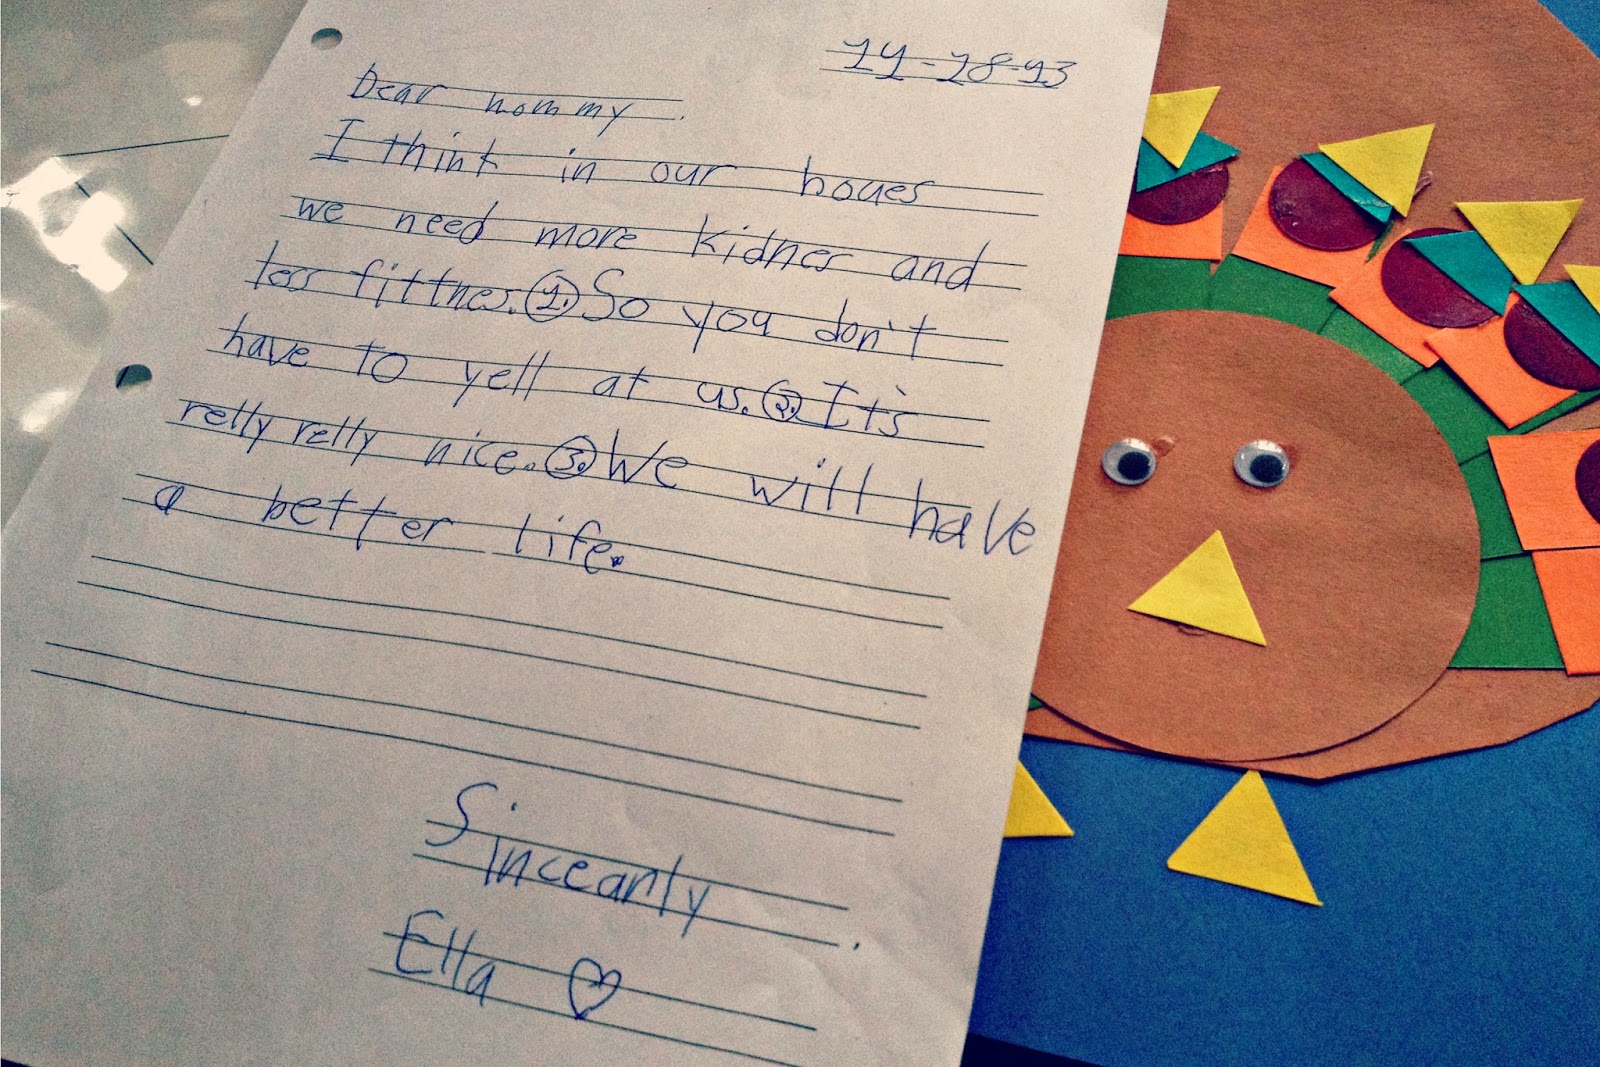 11-18-13
Dear mommy.
I think in our houes
we need more kidnes and
less fittnes. 1. So you don't
have to yell at us. 2. It's
relly relly nice. 3. We will have
a better life.
Sinceanly
Ella ♡